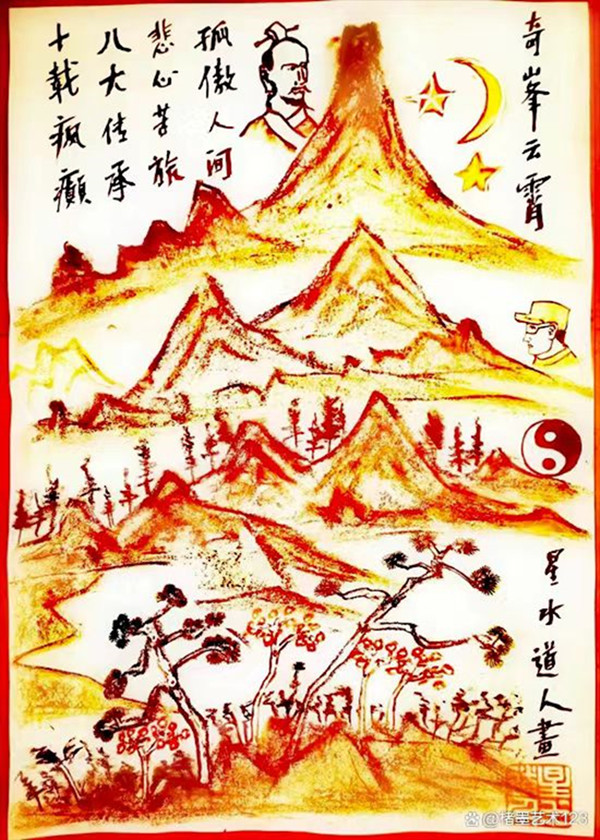 奇峯云霄
孤傲人间
悲心苦旅
八大传承
十載疯癲
星水道人畫
@楮墨艺术123